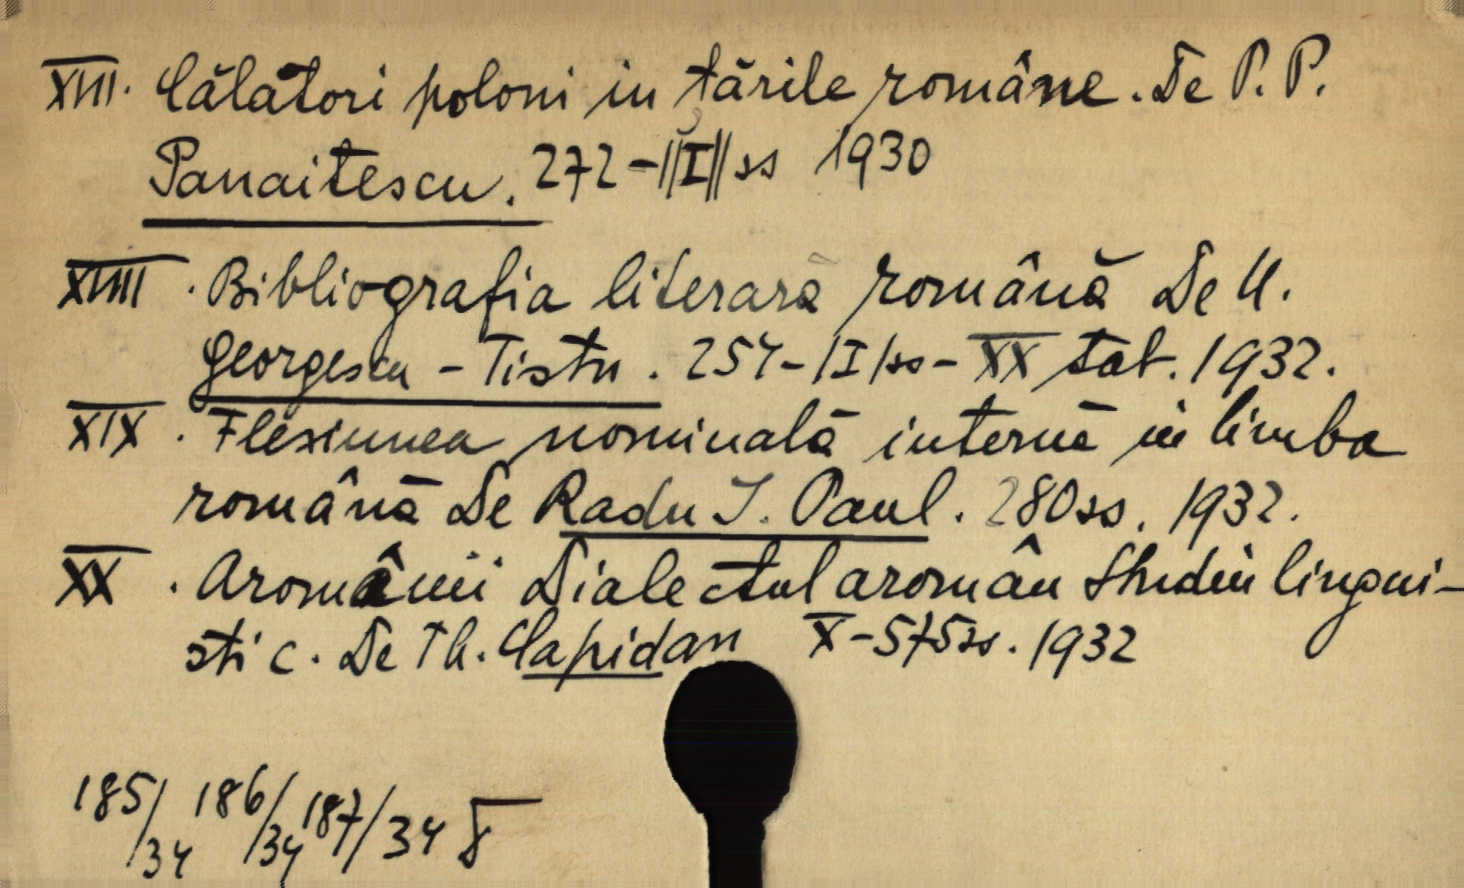 XVII. Călători poloni in țările române. De P. P.
Panaitescu. 272 - ||I|| ss 1930
XVIII. Bibliografia literară română De N.
Georgescu - Tistu. 254 - |I| ss - XX tab. 1932.
XIX. Flexiunea nominală internă in limba
română De Radu I. Paul. 280 ss. 1932.
XX. Aromânii Dialectul aromân Studiu lingui-
stic. De Th. Capidan X - 575 ss. 1932
185/34 186/34 187/34